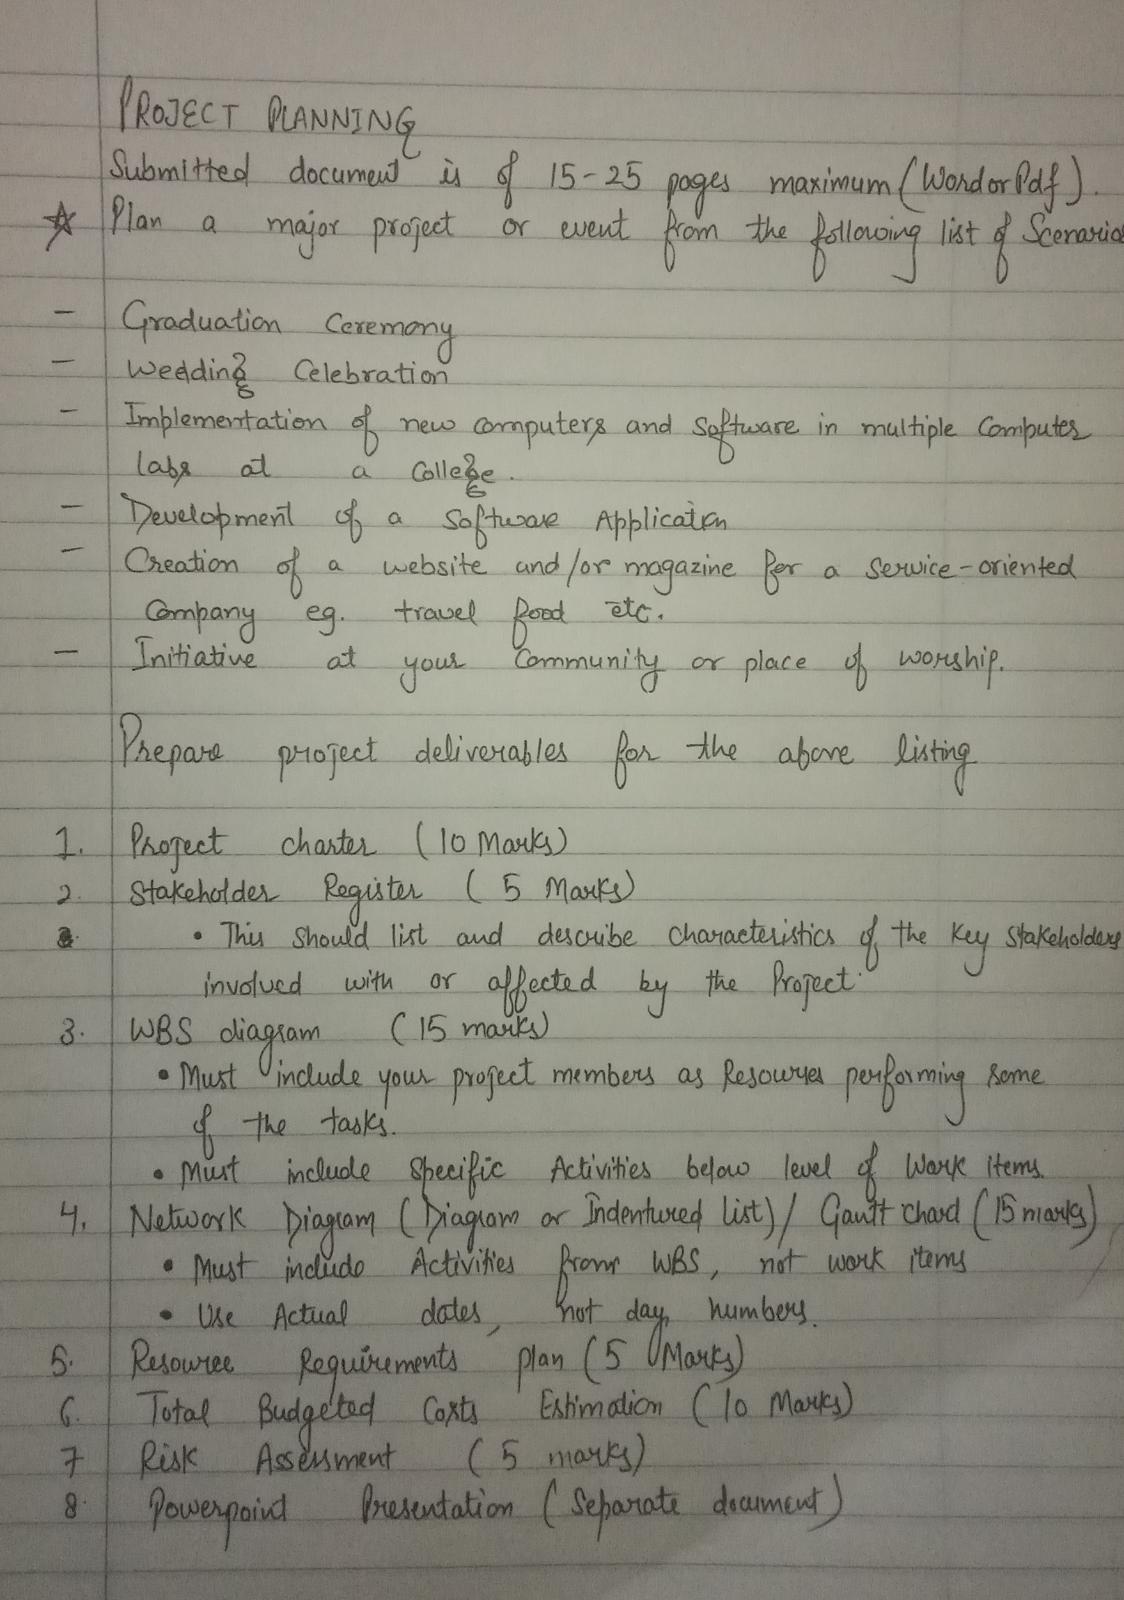 PROJECT PLANNING
Submitted document is of 15-25 pages maximum (Word or Pdf).
☆ Plan a major project or event from the following list of Scenario
- Graduation Ceremony
- Wedding Celebration
- Implementation of new computers and Software in multiple Computer
labs at a College.
- Development of a Software Application
- Creation of a website and/or magazine for a Service-oriented
Company eg. travel food etc.
- Initiative at your Community or place of worship.
Prepare project deliverables for the above listing
1. Project charter (10 Marks)
2. Stakeholder Register (5 Marks)
• This should list and describe characteristics of the Key Stakeholders
involved with or affected by the Project.
3. WBS diagram (15 marks)
• Must include your project members as Resources performing some
of the tasks.
• Must include Specific Activities below level of Work items.
4. Network Diagram (Diagram or Indentured list) / Gantt chard (15 marks)
• Must include Activities from WBS, not work items
• Use Actual dates, not day, numbers.
5. Resource Requirements plan (5 Marks)
6. Total Budgeted Costs Estimation (10 Marks)
7 Risk Assessment (5 marks)
8. Powerpoint Presentation (Separate document)